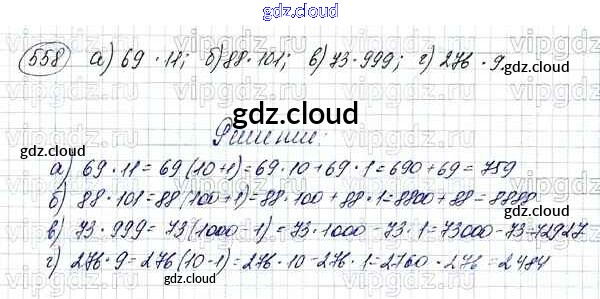 gdz.cloud
558 а) 69 · 11; б) 88 · 101; в) 73 · 999; г) 276 · 9.
gdz.cloud
gdz.cloud
gdz.cloud
Решение:
gdz.cloud
а) 69 · 11 = 69 (10+1) = 69 · 10 + 69 · 1 = 690 + 69 = 759
б) 88 · 101 = 88 (100+1) = 88 · 100 + 88 · 1 = 8800 + 88 = 8888
в) 73 · 999 = 73 (1000 - 1) = 73 · 1000 - 73 · 1 = 73000 - 73 = 72927
г) 276 · 9 = 276 (10 - 1) = 276 · 10 - 276 · 1 = 2760 · 276 = 2484
gdz.cloud
gdz.cloud
gdz.cloud